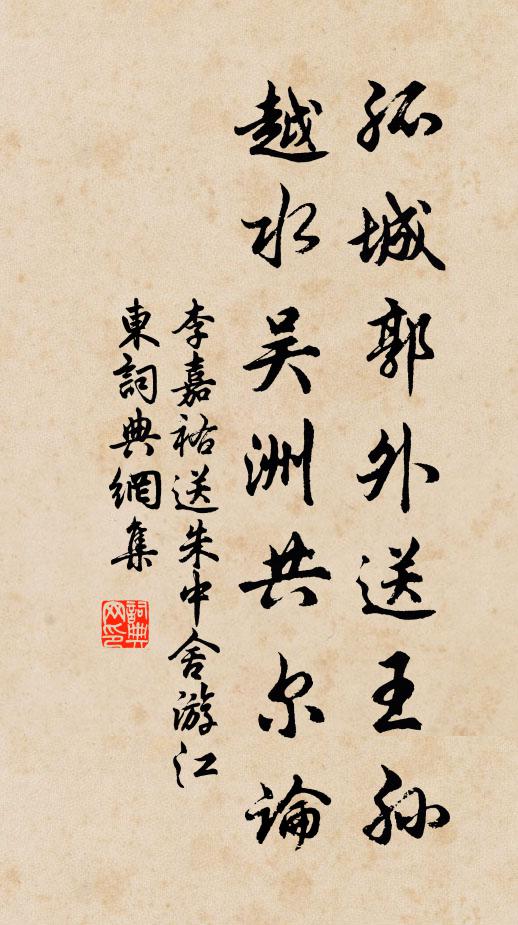 孤城郭外送王孙
越水吴洲共尔論
李嘉祐送朱中舍游江
東詞典網集
詞典网印